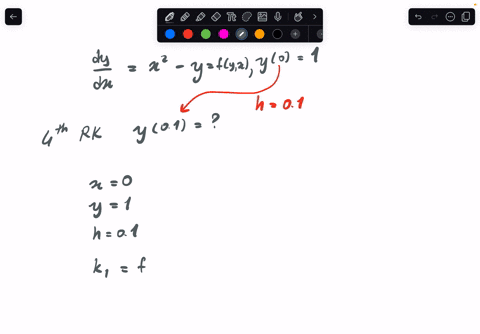 dy/dx = x² - y = f(y,x), y(0) = 1
h = 0.1
4th RK y(0.1) = ?
x = 0
y = 1
h = 0.1
k₁ = f